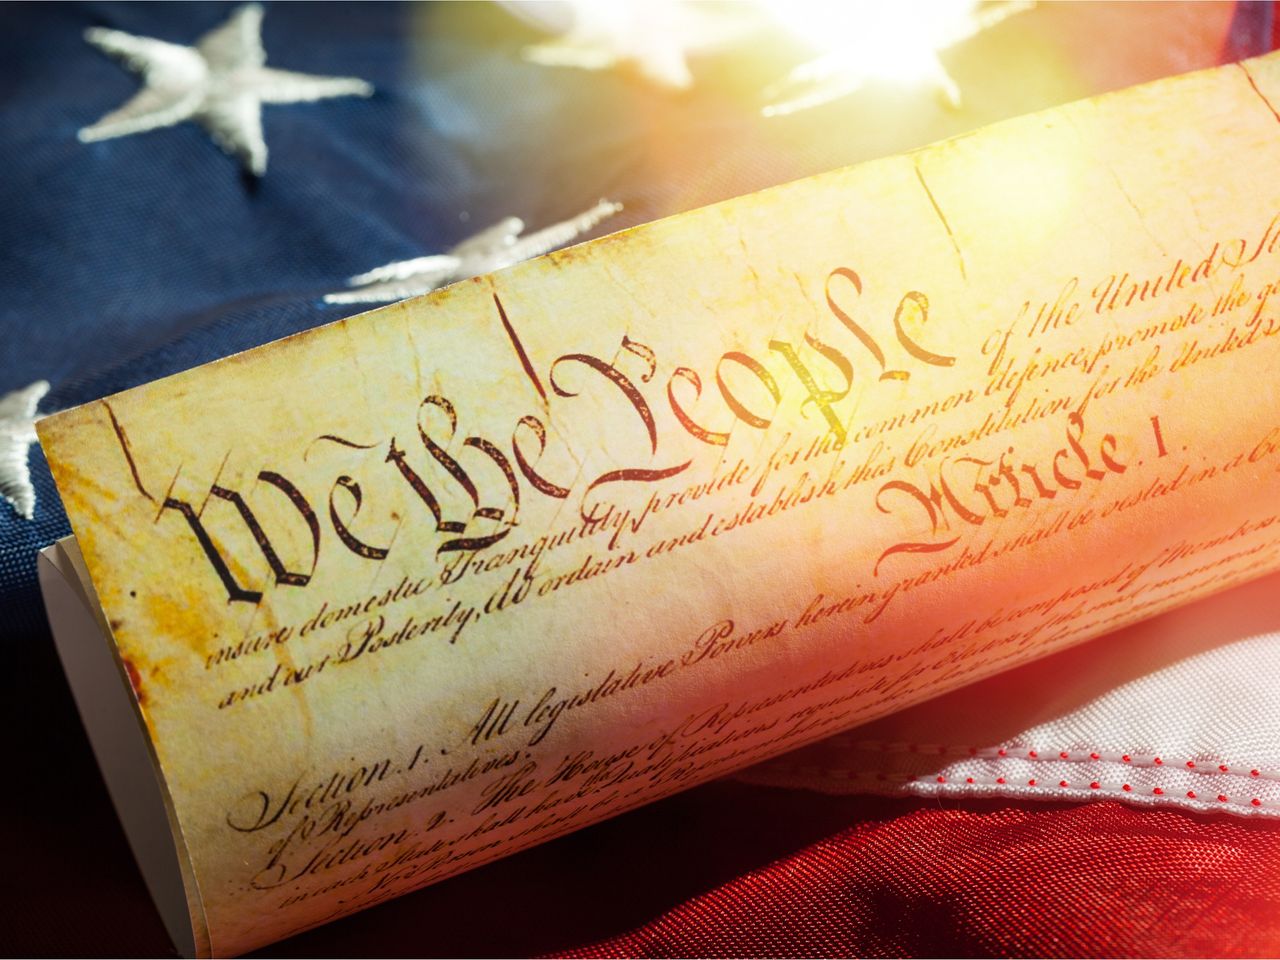 We the People of the United
insure domestic Tranquility, provide for the common defence, promote the
and our Posterity, do ordain and establish this Constitution for the United
Article. I.
Section. 1. All legislative Powers herein granted shall be vested in a
of Representatives.
Section. 2. The House of Representatives shall be composed of Members
in each State shall have the Qualifications requisite for Electors of the most numerous